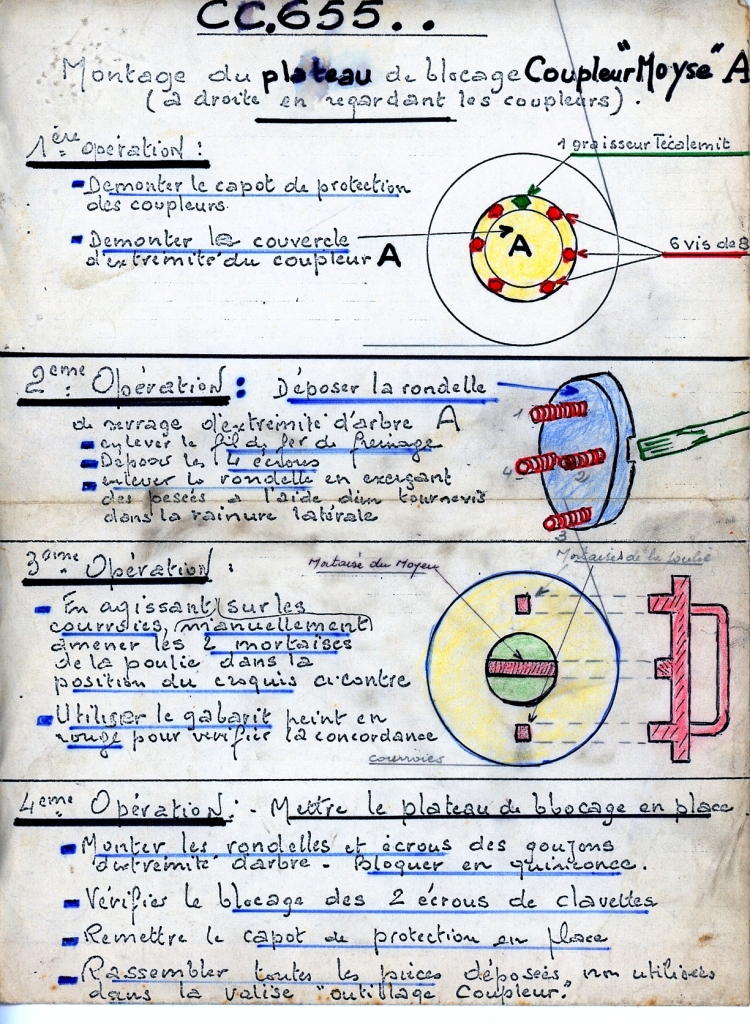 CC.655..
Montage du plateau de blocage Coupleur "Moyse" A
(a droite en regardant les coupleurs).
1ère opération :
1 graisseur Técalemit
- Demonter le capot de protection
des coupleurs
- Demonter le couvercle
d'extrémité du coupleur A
A
6 vis de 8
2eme Opération : Déposer la rondelle
de serrage d'extrémité d'arbre A
- enlever le fil de fer de freinage
- Déposer les 4 écrous
- enlever la rondelle en exerçant
des pesées a l'aide d'un tournevis
dans la rainure latérale
1
4
2
3
3eme Opération :
Mortaise du Moyeu
Mortaises de la poulie
- En agissant sur les
courroies, manuellement
amener les 2 mortaises
de la poulie dans la
position du croquis ci.contre
- Utiliser le gabarit peint en
rouge pour vérifier la concordance
courroies
4eme Opération : - Mettre le plateau de blocage en place
- Monter les rondelles et écrous des goujons
d'extrémité d'arbre - Bloquer en quinconce.
- Vérifier le blocage des 2 écrous de clavettes
- Remettre le capot de protection en place
- Rassembler toutes les pièces déposées non utilisées
dans la valise "outillage Coupleur."